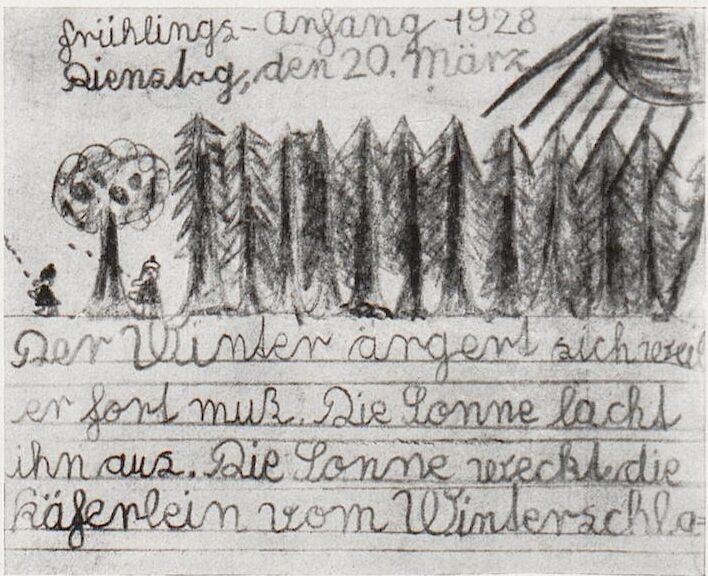 Frühlings-Anfang 1928
Dienstag, den 20. März
Der Winter ärgert sich weil
er fort muß. Die Sonne lacht
ihn aus. Die Sonne weckt die
Käferlein vom Winterschla=